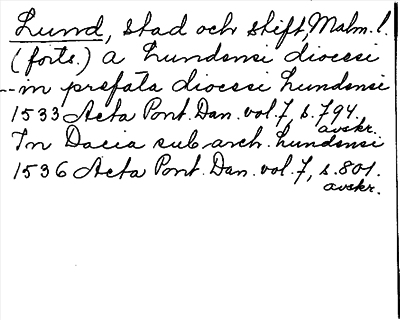 Lund, stad och stift, Malm. l.
(forts.) a Lundensi diocesi
-- in prefata diocesi Lundensi
1533 Acta Pont. Dan. vol. 7, s. 794.
avskr.
In Dacia sub arch. Lundensi
1536 Acta Pont. Dan. vol. 7, s. 801.
avskr.